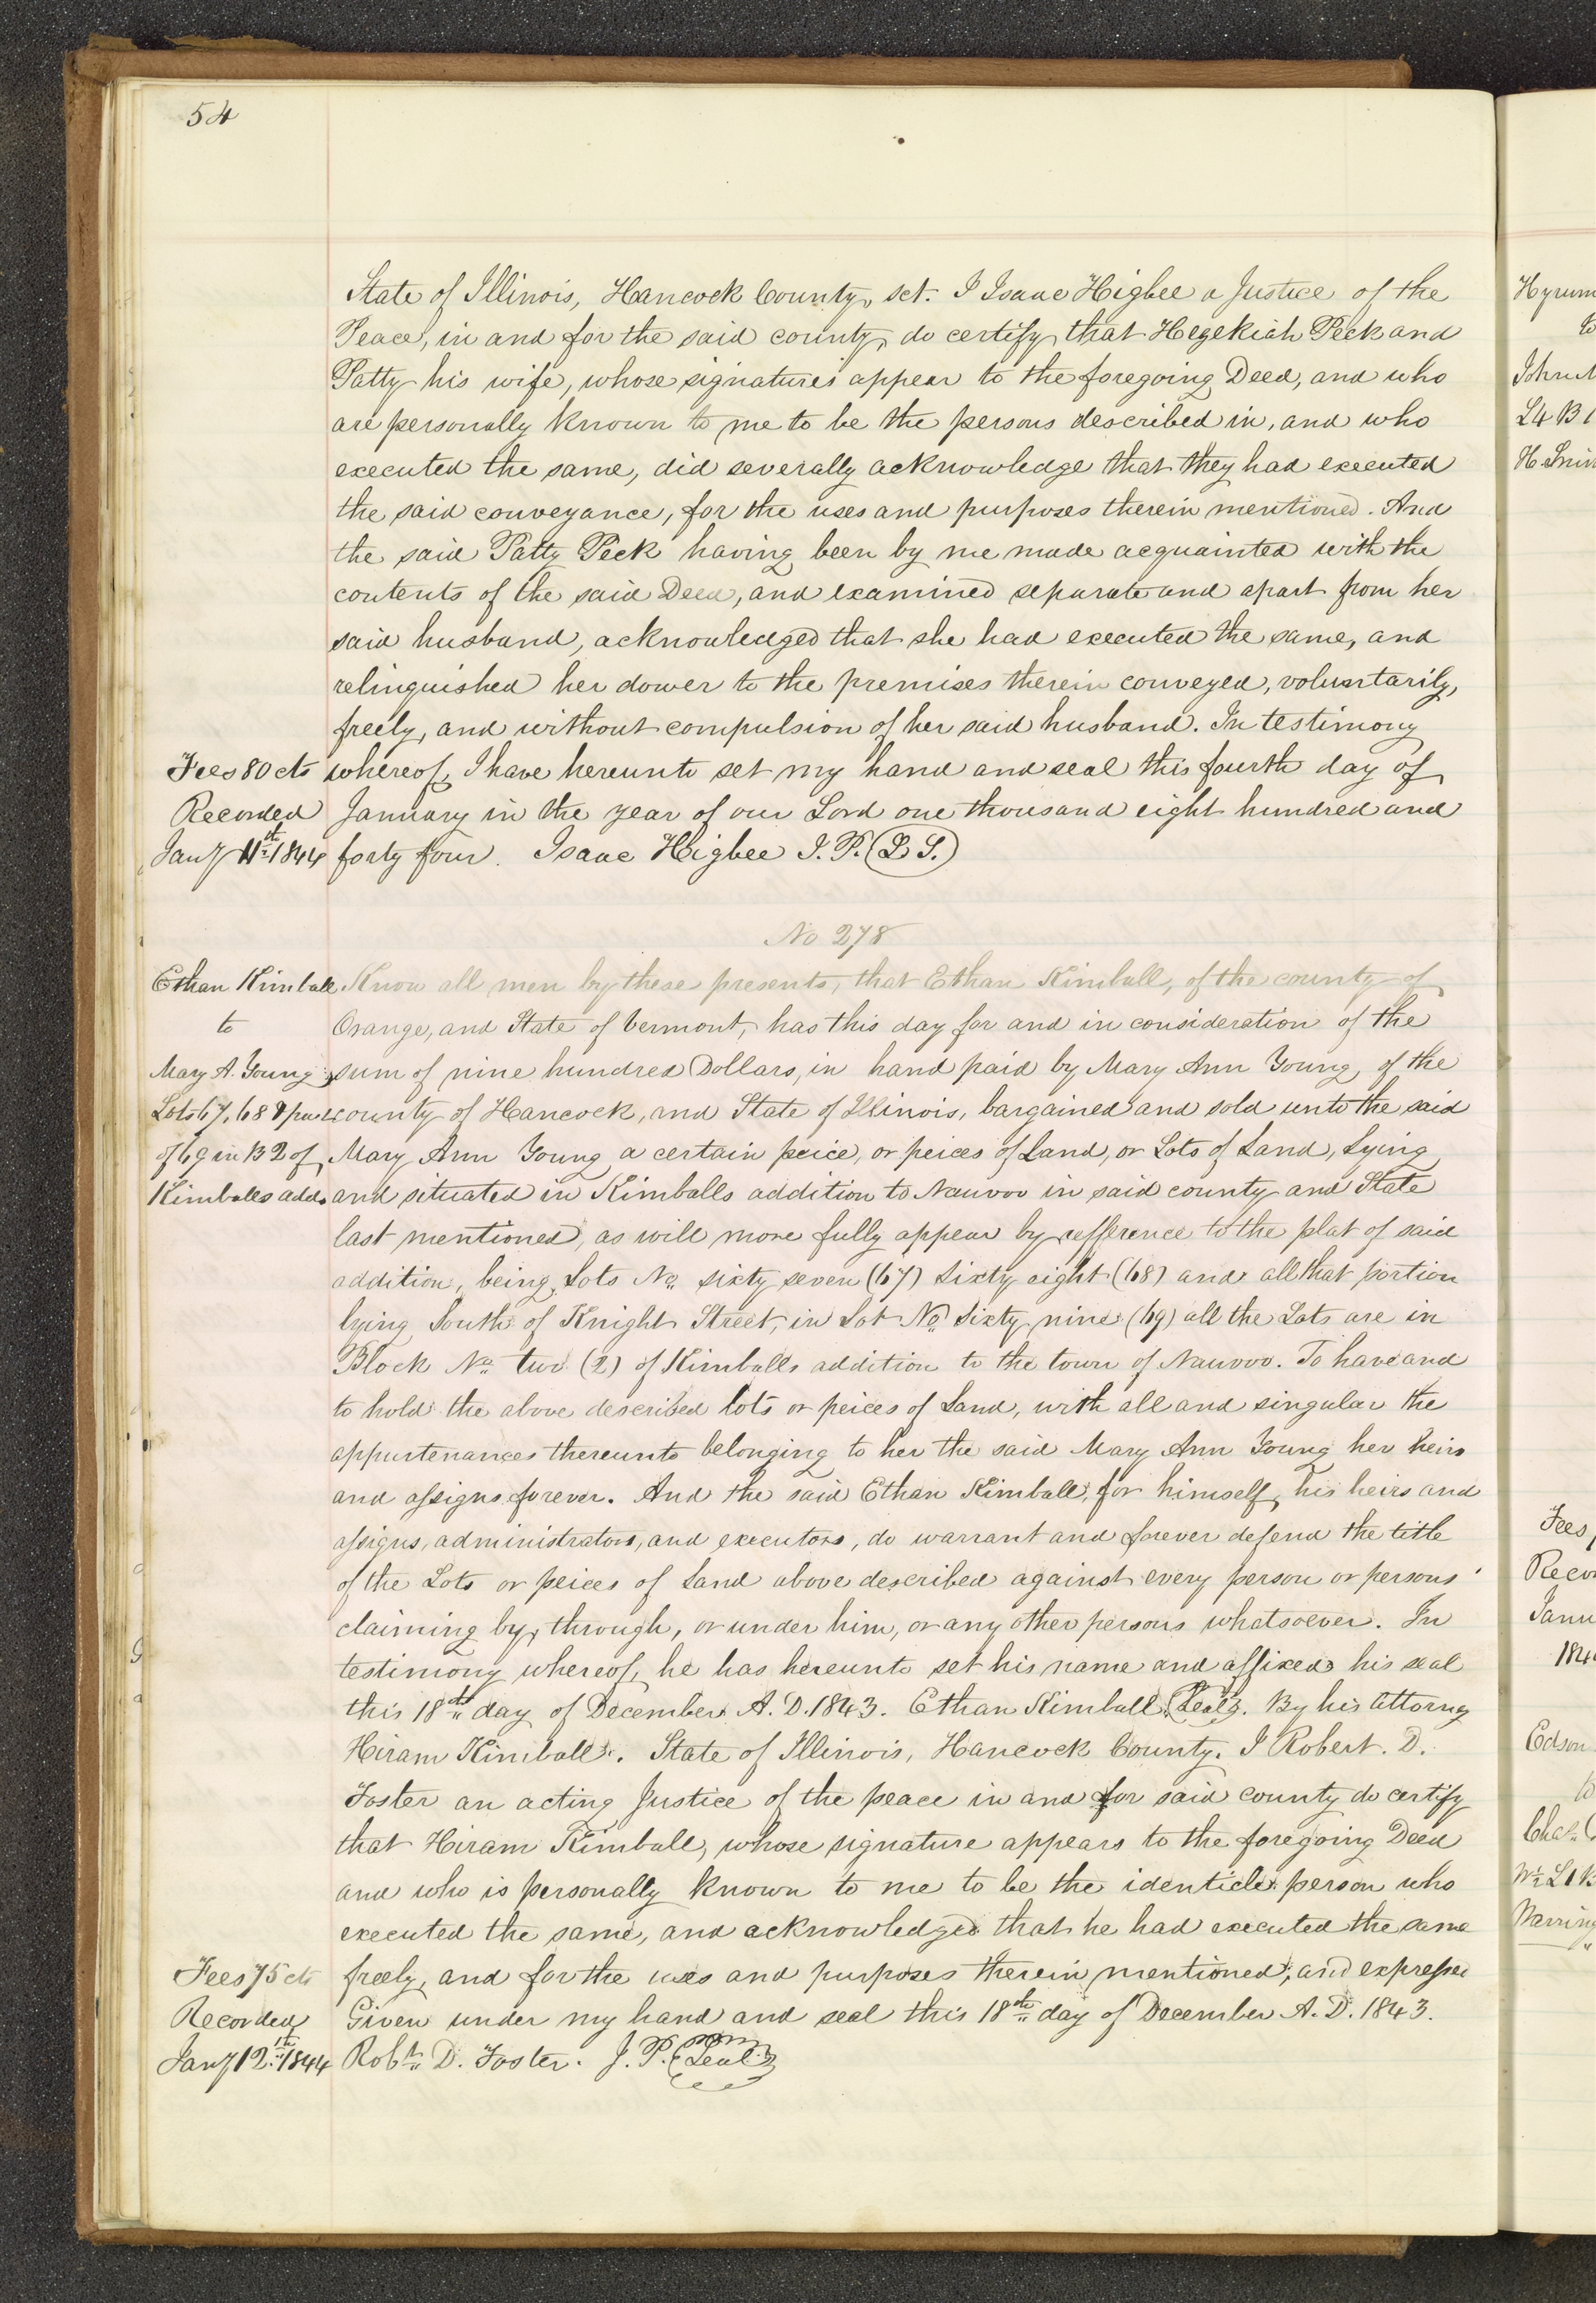 54
State of Illinois, Hancock County, sct. I Isaac Higbee a Justice of the
Peace, in and for the said county, do certify that Hezekiah Peck and
Patty his wife, whose signatures appear to the foregoing Deed, and who
are personally known to me to be the persons described in, and who
executed the same, did severally acknowledge that they had executed
the said conveyance, for the uses and purposes therein mentioned. And
the said Patty Peck having been by me made acquainted with the
contents of the said Deed, and examined separate and apart from her
said husband, acknowledged that she had executed the same, and
relinquished her dower to the premises therein conveyed, voluntarily,
freely, and without compulsion of her said husband. In testimony
Fees 80 cts whereof, I have hereunto set my hand and seal this fourth day of
Recorded January in the year of our Lord one thousand eight hundred and
Jany 11th 1844 forty four. Isaac Higbee J. P. (L S.)
No 278
Ethan Kimball Know all men by these presents, that Ethan Kimball, of the county of
to Orange, and State of Vermont, has this day for and in consideration of the
Mary A. Young sum of nine hundred Dollars, in hand paid by Mary Ann Young, of the
Lots 67, 68 & part county of Hancock, and State of Illinois, bargained and sold unto the said
of 69 in B 2 of Mary Ann Young a certain peice, or peices of Land, or Lots of Land, Lying
Kimballs add. and situated in Kimballs addition to Nauvoo in said county and State
last mentioned, as will more fully appear by refference to the plat of said
addition, being Lots No. sixty seven (67) sixty eight (68) and all that portion
lying South of Knight Street, in Lot No. Sixty nine (69) all the Lots are in
Block No. two (2) of Kimballs addition to the town of Nauvoo. To have and
to hold the above described lots or peices of Land, with all and singular the
appurtenances thereunto belonging to her the said Mary Ann Young her heirs
and assigns forever. And the said Ethan Kimball, for himself, his heirs and
assigns, administrators, and executors, do warrant and forever defend the title
of the Lots or peices of Land above described against every person or persons
claiming by, through, or under him, or any other persons whatsoever. In
testimony whereof, he has hereunto set his name and affixed his seal
this 18th day of December A. D. 1843. Ethan Kimball {Seal}. By his Attorny
Hiram Kimball. State of Illinois, Hancock County. I Robert. D.
Foster an acting Justice of the peace in and for said county do certify
that Hiram Kimball, whose signature appears to the foregoing Deed
and who is personally known to me to be the identicle person who
executed the same, and acknowledged that he had executed the same
Fees 75 cts freely, and for the uses and purposes therein mentioned, and expressed
Recorded Given under my hand and seal this 18th day of December A. D. 1843.
Jany 12th 1844 Robt. D. Foster. J. P. {Seal}
Hyrum
L4 B1
Fees
Edson